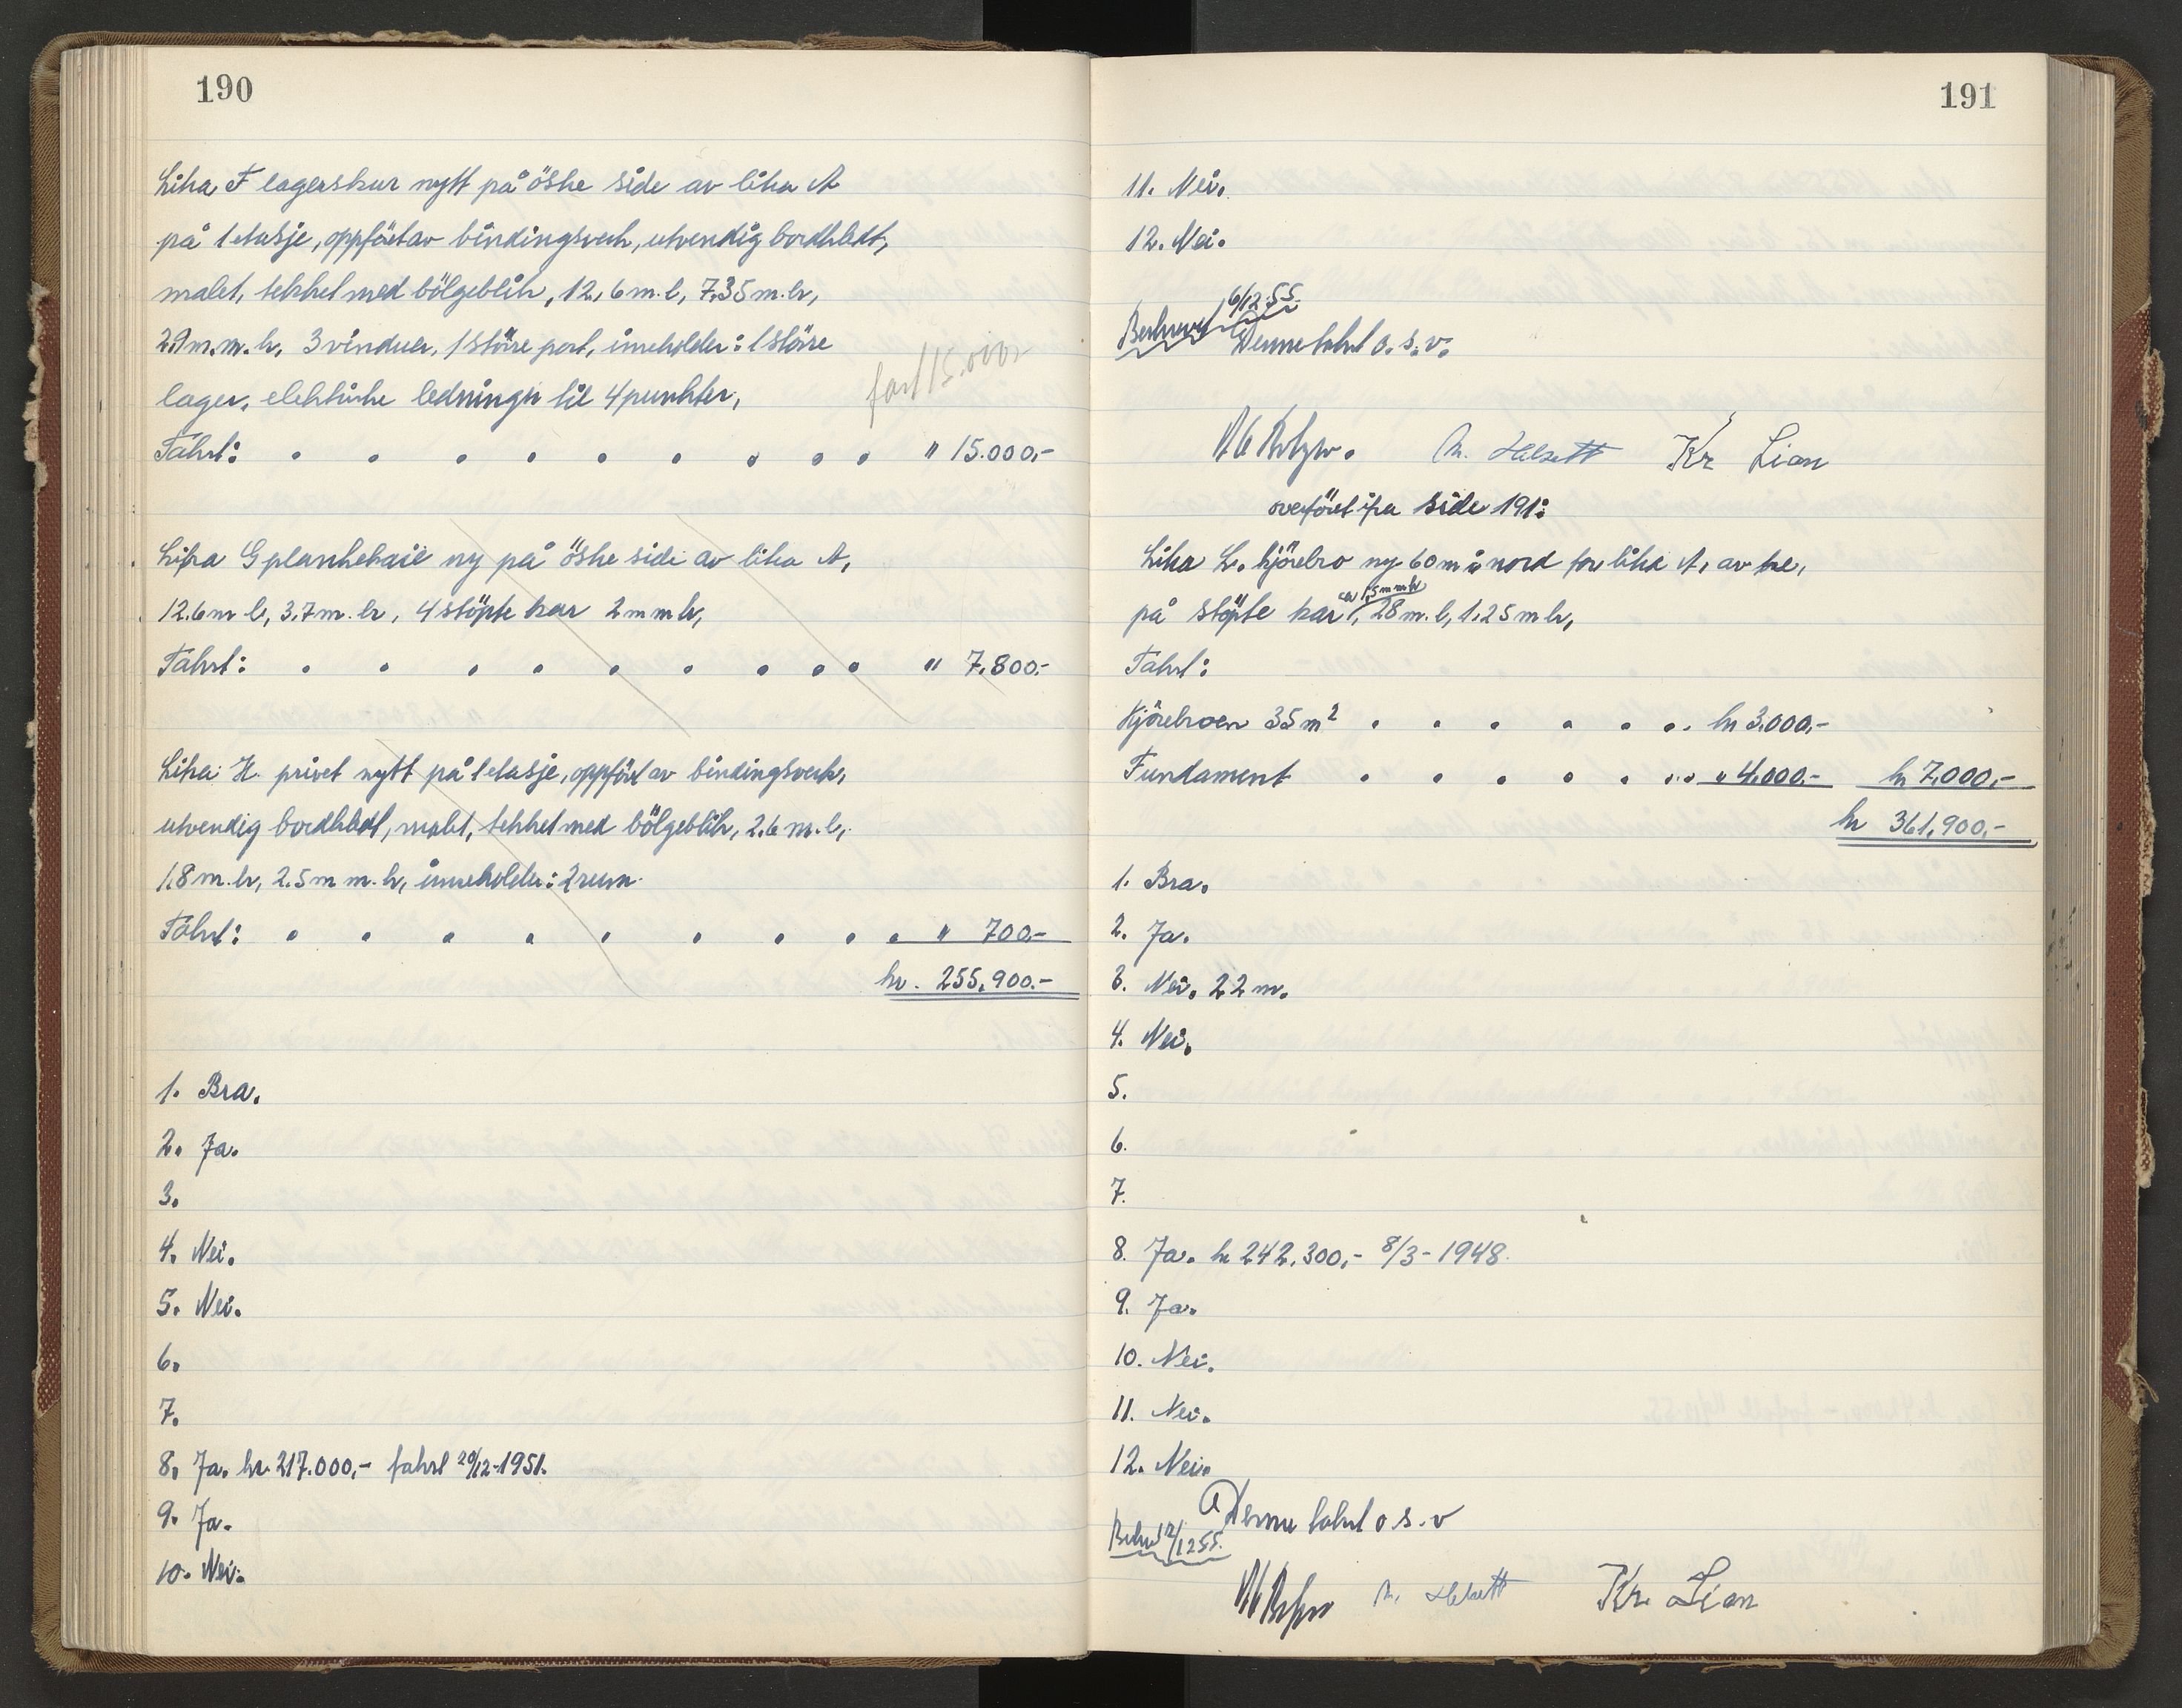 190
Litra F lagerskur nytt på östre side av litra A
på 1 etasje, oppfört av bindingsverk, utvendig bordkledt,
malet, tekket med bölgeblik, 12,6 m. l, 7,35 m. br,
2.9 m. m. h, 3 vinduer, 1 större port, inneholder: 1 större
lager, elektriske ledninger til 4 punkter,
Takst: . . . . . . . . . . " 15.000,-
Litra G plankekaie ny på östre side av litra A,
12.6 m l, 3,7 m. br, 4 stöpte kar 2 m m h,
Takst: . . . . . . . . . " 7.800.-
Litra H. privet nytt på 1 etasje, oppfört av bindingsverk,
utvendig bordkledt, malet, tekket med bölgeblik, 2.6 m. l,
1,8 m. br, 2.5 m m. h, inneholder: 2 rum.
Takst: . . . . . . . . . " 700.-
kr. 255,900.-
1. Bra.
2. Ja.
3.
4. Nei.
5. Nei.
6.
7.
8. Ja. kr. 217.000,- takst 20/12-1951.
9. Ja.
10. Nei.
191
11. Nei.
12. Nei.
6/12.55.
Denne takst o. s. v.
Kr Lian
overfört fra side 191:
Litra L. kjörebro ny 60 m i nord for litra A, av tre,
ca 1,5 m m h
på stöpte kar, 28 m. l, 1.25 m br,
Takst:
Kjörebroen 35 m² . . . . . . kr 3.000,-
Fundament . . . . . . . " 4.000.- kr 7,000,-
kr 361,900,-
1. Bra.
2. Ja.
3. Nei. 22 m.
4. Nei.
5.
6.
7.
8. Ja. kr 242.300,- 8/3-1948.
9. Ja.
10. Nei.
11. Nei.
12. Nei.
Denne takst o s. v
12/12 55.
Kr. Lian